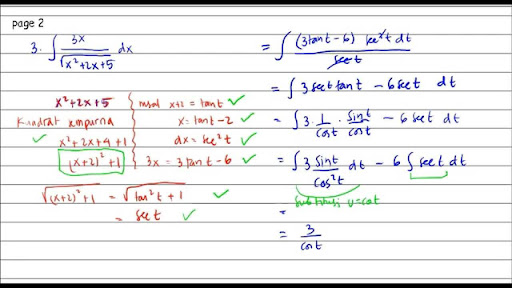 page 2
3. ∫ 3x / √(x²+2x+5) dx
x²+2x+5
kuadrat sempurna
✓ x²+2x+4+1
(x+2)²+1
√((x+2)²+1) = √(tan²t+1) ✓
= sec t ✓
misal x+2 = tan t ✓
x = tan t - 2 ✓
dx = sec² t ✓
3x = 3 tan t - 6 ✓
= ∫ (3 tan t - 6) sec² t dt / sec t
= ∫ 3 sec t tan t - 6 sec t dt
= ∫ 3 · 1/cos t · sin t/cos t - 6 sec t dt
= ∫ 3 sin t / cos² t dt - 6 ∫ sec t dt
substitusi u=cos t
=
= 3 / cos t